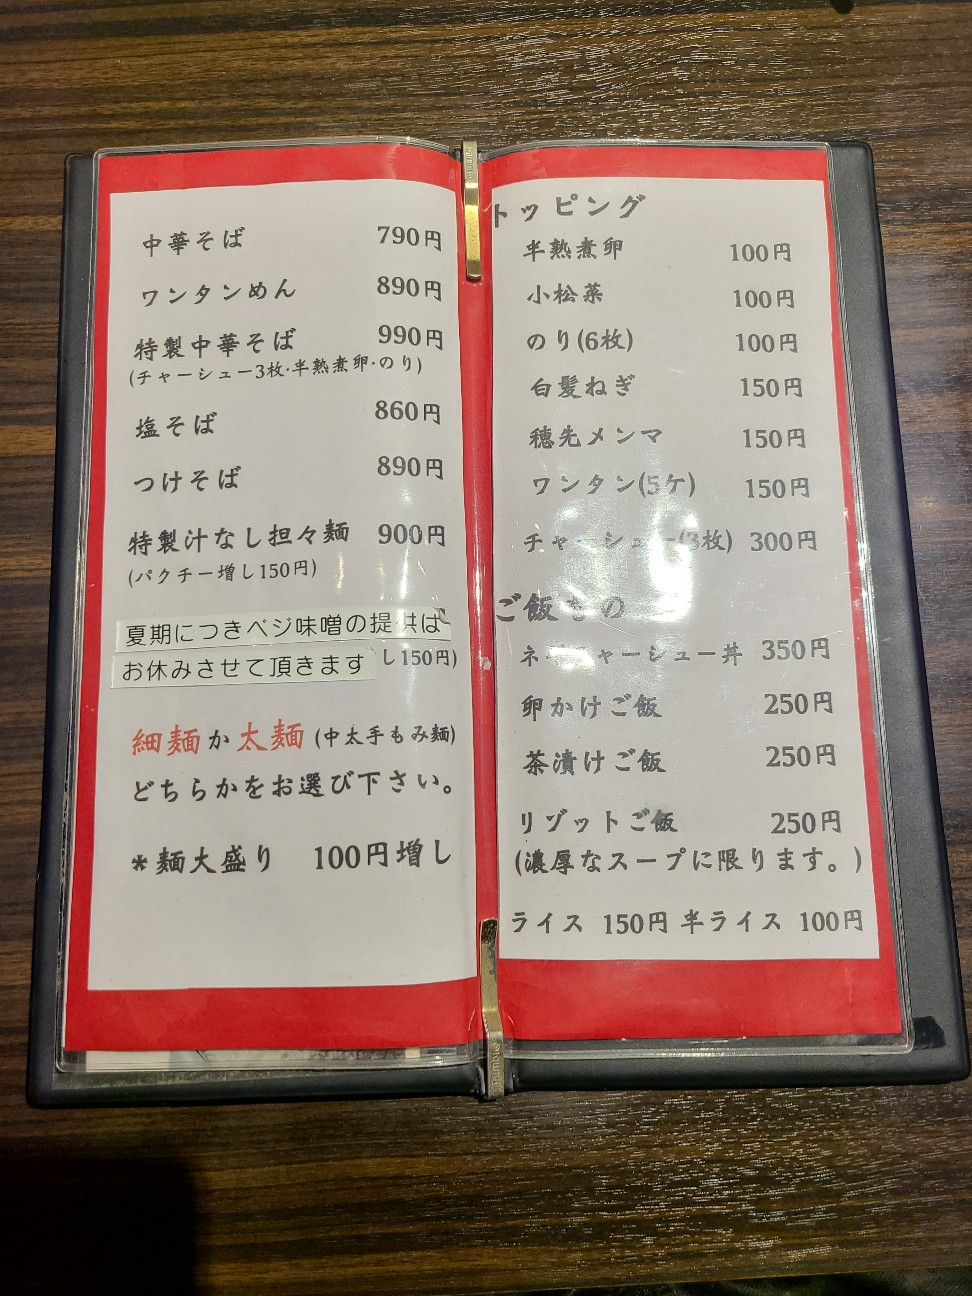 中華そば 790円
ワンタンめん 890円
特製中華そば 990円
(チャーシュー3枚・半熟煮卵・のり)
塩そば 860円
つけそば 890円
特製汁なし担々麺 900円
(パクチー増し150円)
夏期につきベジ味噌の提供は
お休みさせて頂きます
し150円)
細麺か太麺(中太手もみ麺)
どちらかをお選び下さい。
*麺大盛り 100円増し
トッピング
半熟煮卵 100円
小松菜 100円
のり(6枚) 100円
白髪ねぎ 150円
穂先メンマ 150円
ワンタン(5ケ) 150円
チャーシュー(3枚) 300円
ご飯もの
ネギチャーシュー丼 350円
卵かけご飯 250円
茶漬けご飯 250円
リゾットご飯 250円
(濃厚なスープに限ります。)
ライス 150円 半ライス 100円